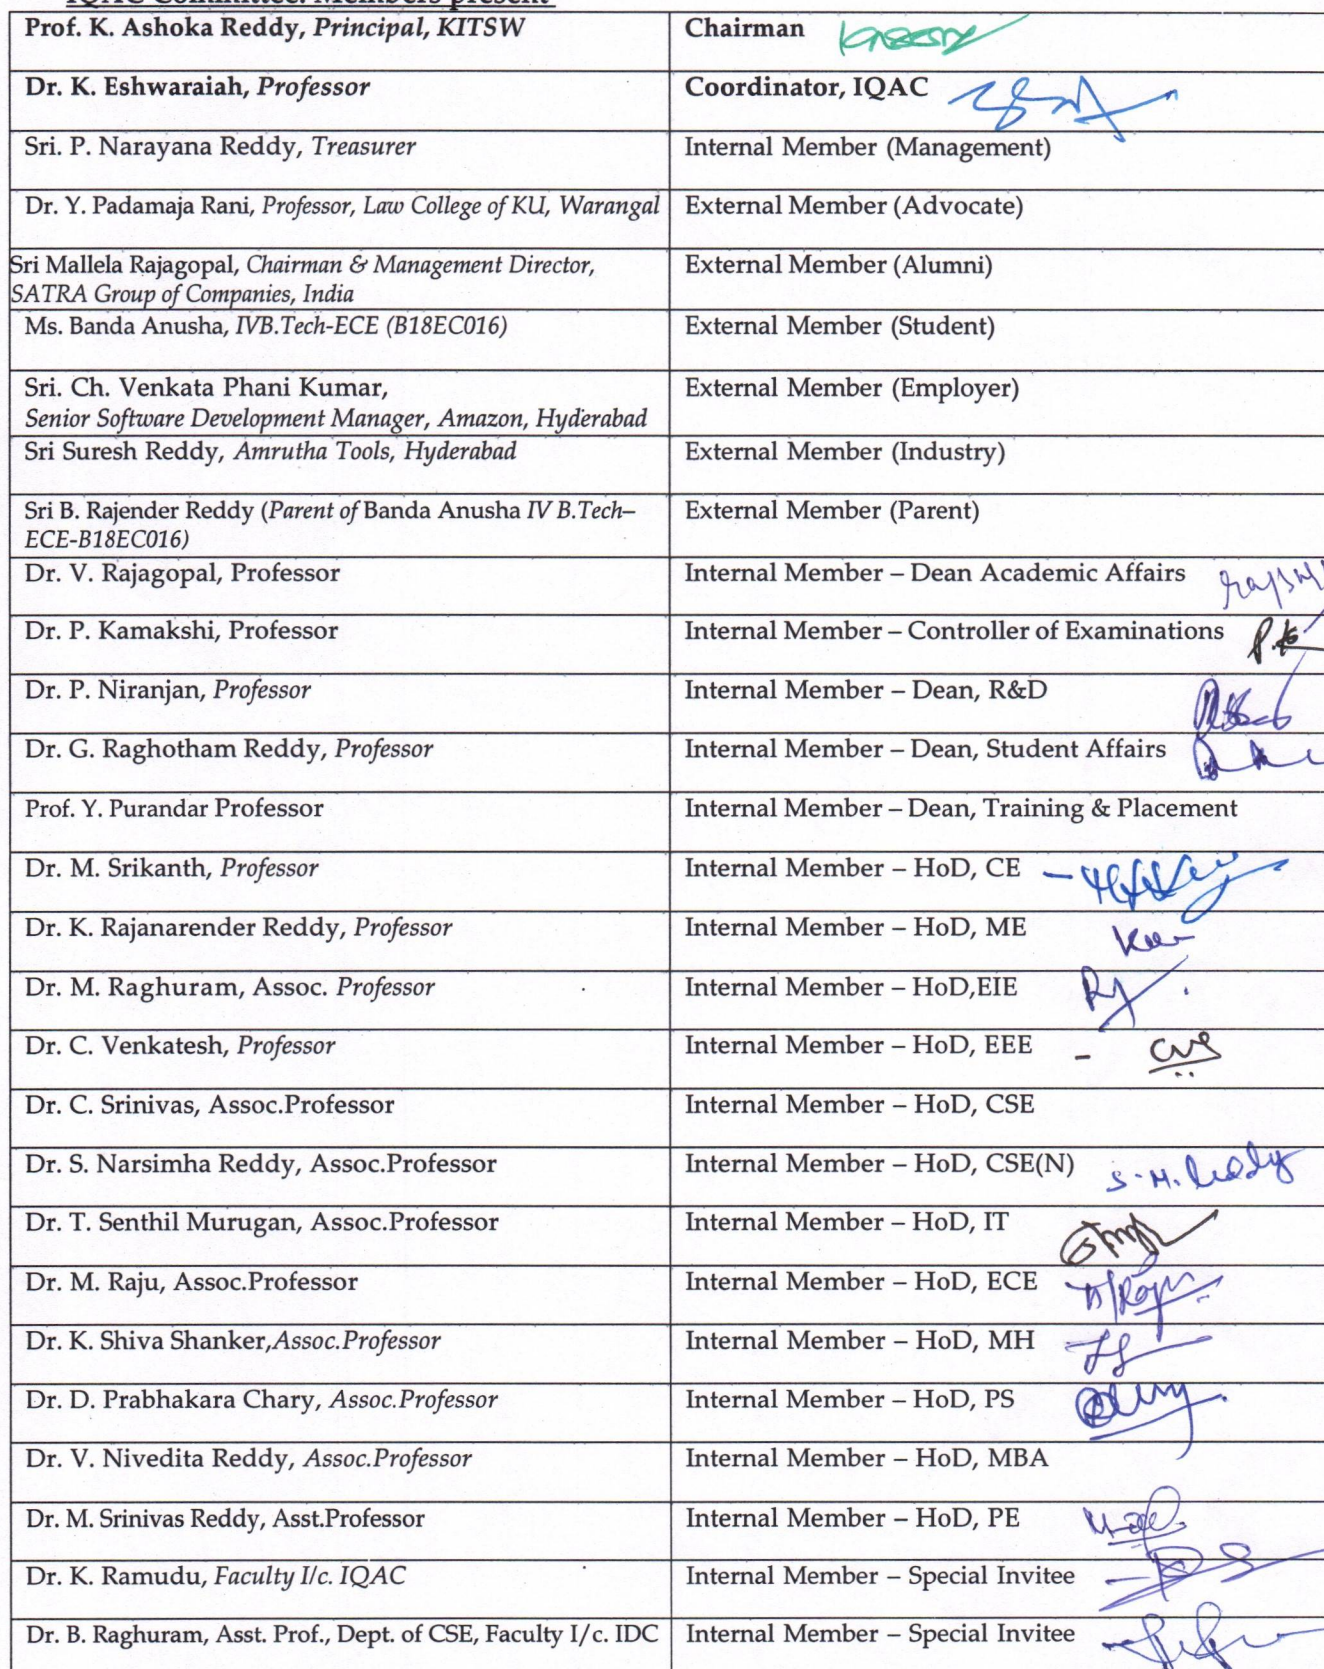 IQAC Committee: Members present
Prof. K. Ashoka Reddy, Principal, KITSW Chairman
Dr. K. Eshwaraiah, Professor Coordinator, IQAC
Sri. P. Narayana Reddy, Treasurer Internal Member (Management)
Dr. Y. Padamaja Rani, Professor, Law College of KU, Warangal External Member (Advocate)
Sri Mallela Rajagopal, Chairman & Management Director, External Member (Alumni)
SATRA Group of Companies, India
Ms. Banda Anusha, IVB.Tech-ECE (B18EC016) External Member (Student)
Sri. Ch. Venkata Phani Kumar, External Member (Employer)
Senior Software Development Manager, Amazon, Hyderabad
Sri Suresh Reddy, Amrutha Tools, Hyderabad External Member (Industry)
Sri B. Rajender Reddy (Parent of Banda Anusha IV B.Tech– External Member (Parent)
ECE-B18EC016)
Dr. V. Rajagopal, Professor Internal Member – Dean Academic Affairs
Dr. P. Kamakshi, Professor Internal Member – Controller of Examinations
Dr. P. Niranjan, Professor Internal Member – Dean, R&D
Dr. G. Raghotham Reddy, Professor Internal Member – Dean, Student Affairs
Prof. Y. Purandar Professor Internal Member – Dean, Training & Placement
Dr. M. Srikanth, Professor Internal Member – HoD, CE
Dr. K. Rajanarender Reddy, Professor Internal Member – HoD, ME
Dr. M. Raghuram, Assoc. Professor Internal Member – HoD,EIE
Dr. C. Venkatesh, Professor Internal Member – HoD, EEE
Dr. C. Srinivas, Assoc.Professor Internal Member – HoD, CSE
Dr. S. Narsimha Reddy, Assoc.Professor Internal Member – HoD, CSE(N) S. N. Reddy
Dr. T. Senthil Murugan, Assoc.Professor Internal Member – HoD, IT
Dr. M. Raju, Assoc.Professor Internal Member – HoD, ECE
Dr. K. Shiva Shanker,Assoc.Professor Internal Member – HoD, MH
Dr. D. Prabhakara Chary, Assoc.Professor Internal Member – HoD, PS
Dr. V. Nivedita Reddy, Assoc.Professor Internal Member – HoD, MBA
Dr. M. Srinivas Reddy, Asst.Professor Internal Member – HoD, PE
Dr. K. Ramudu, Faculty I/c. IQAC Internal Member – Special Invitee
Dr. B. Raghuram, Asst. Prof., Dept. of CSE, Faculty I/c. IDC Internal Member – Special Invitee